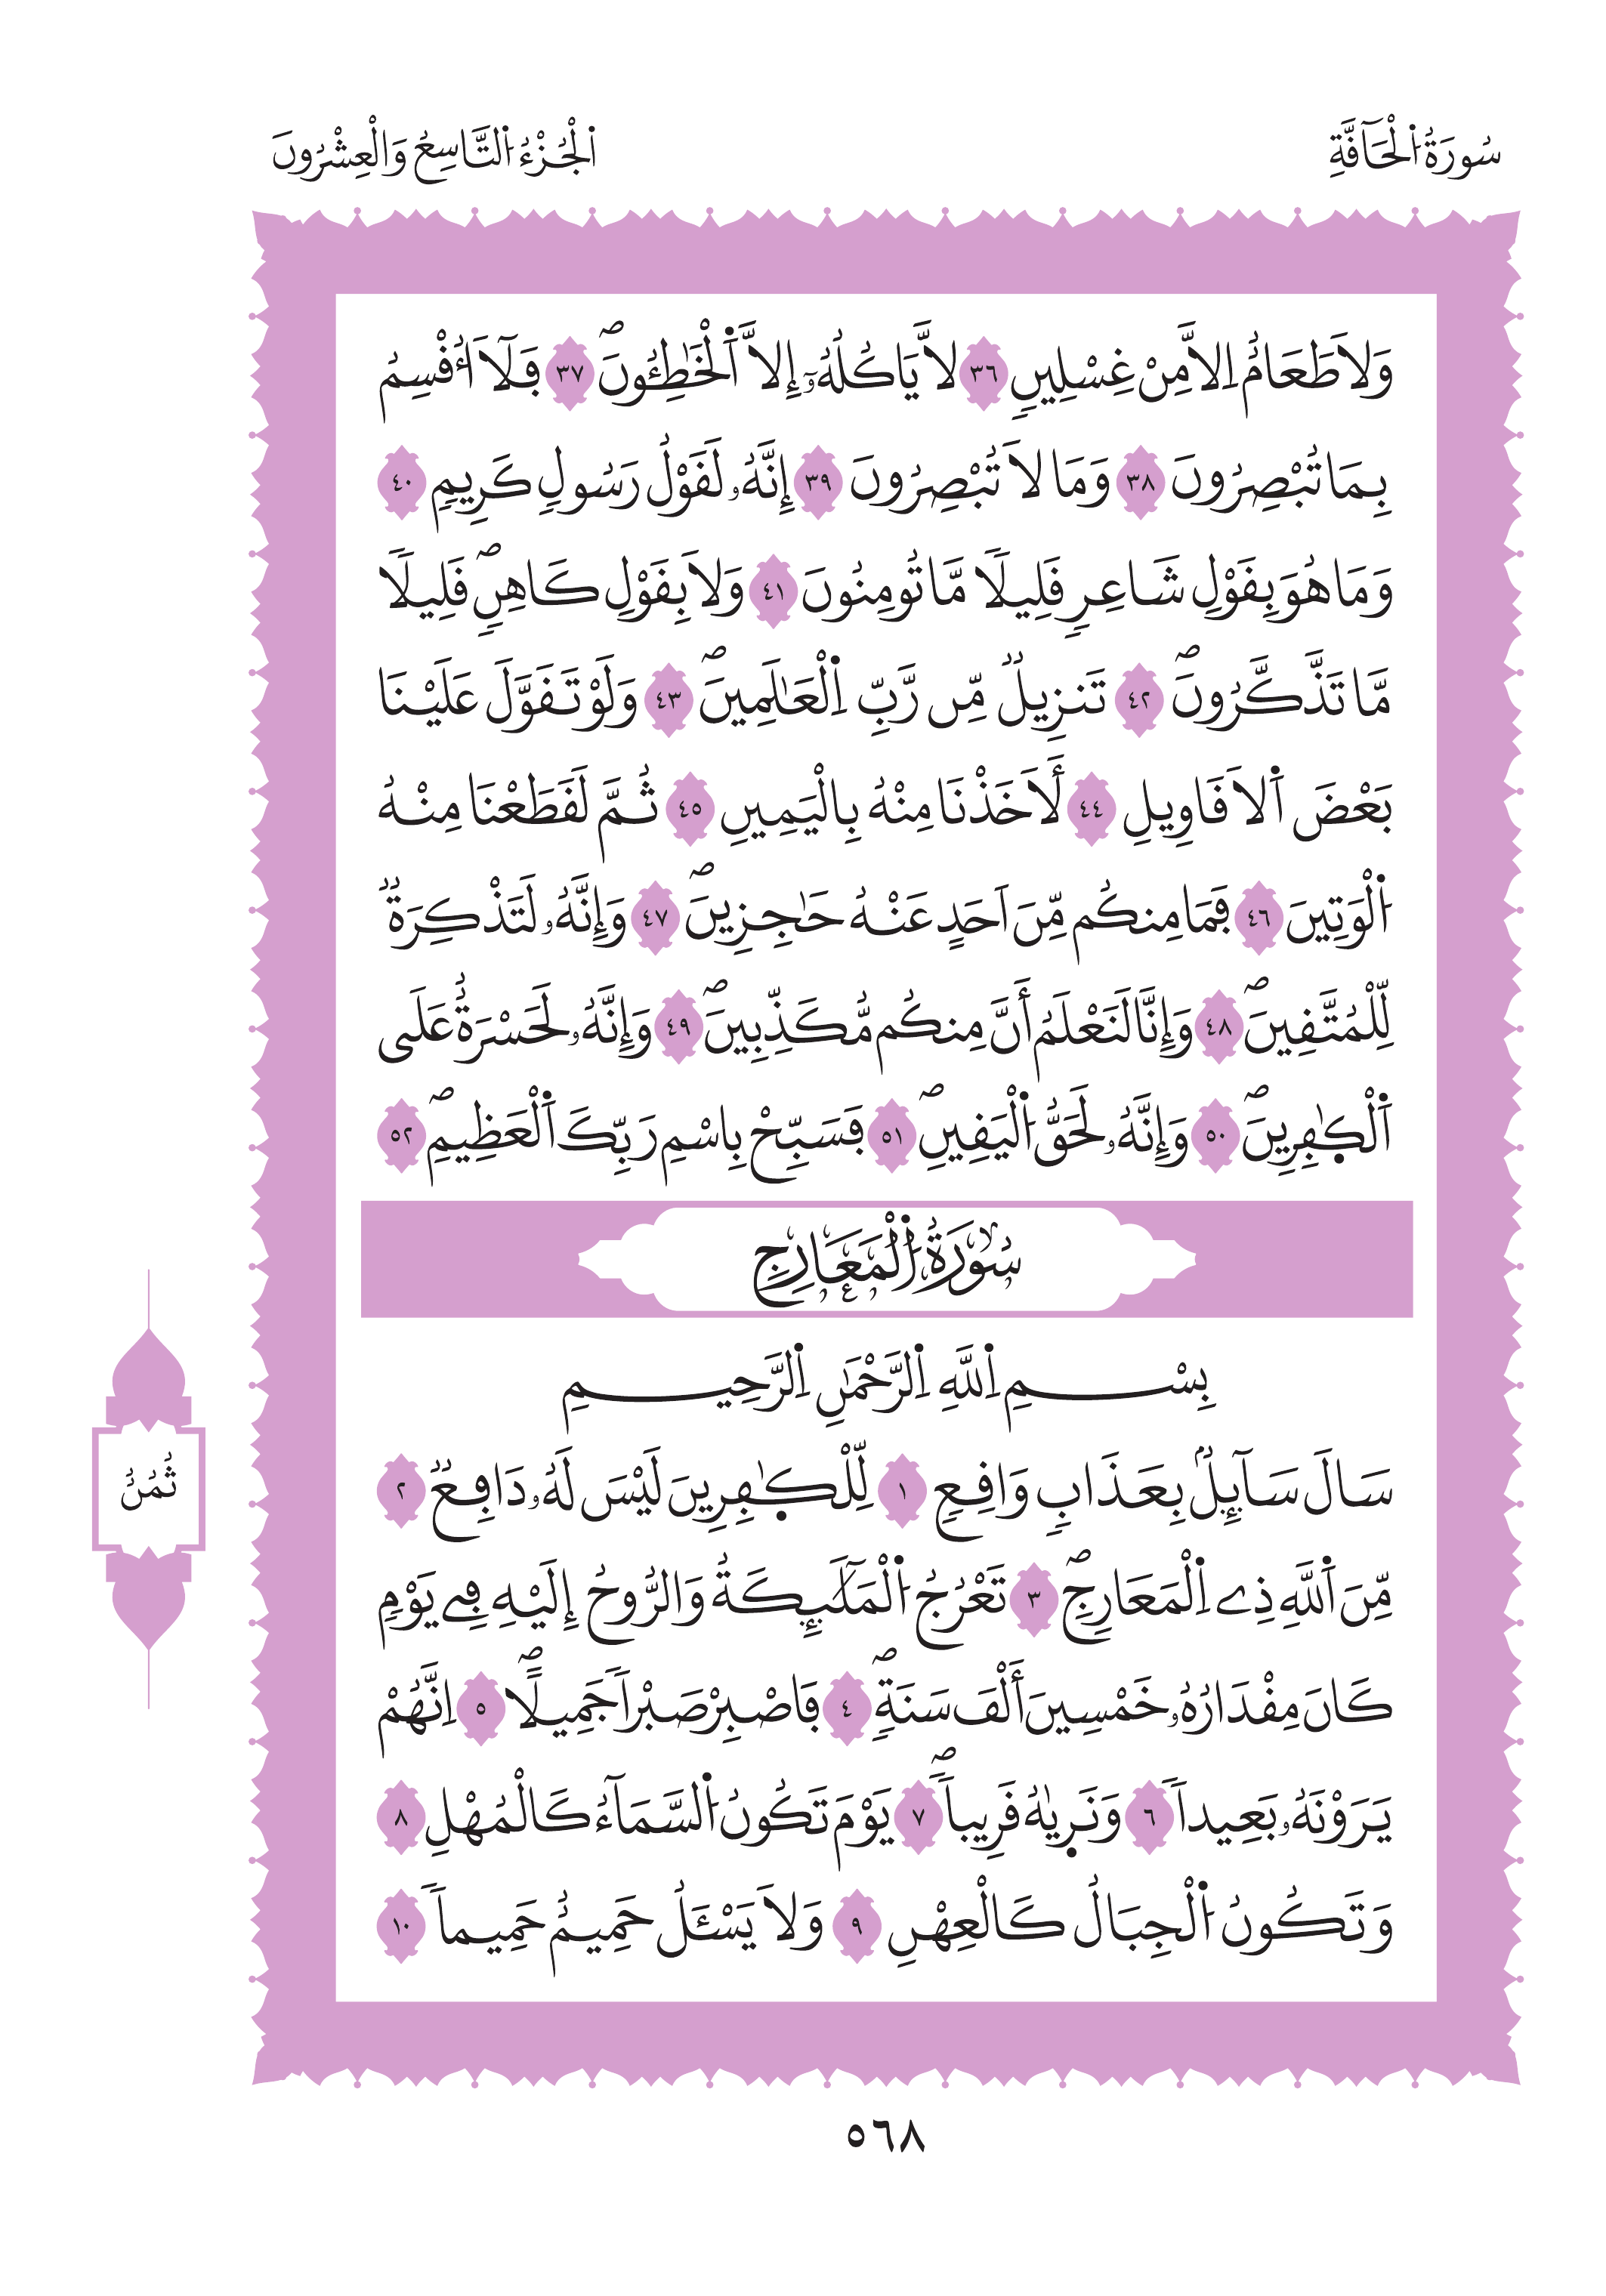 سُورَةُ اُ۬لْحَآفَّةِ
اَ۬لْجُزْءُ اُ۬لتَّاسِعُ وَالْعِشْرُونَ
وَلاَ طَعَامٌ اِلاَّ مِنْ غِسْلِينٖ ٣٦ لاَّ يَاكُلُهُۥٓ إِلاَّ اَ۬لْخَٰطِـُٔونَۖ ٣٧ ڢَلَآ أُفْسِمُ
بِمَا تُبْصِرُونَ ٣٨ وَمَا لاَ تُبْصِرُونَ ٣٩ إِنَّهُۥ لَفَوْلُ رَسُولٖ كَرِيمٖ ٤٠
وَمَا هُوَ بِفَوْلِ شَاعِرٖ فَلِيلٗا مَّا تُومِنُونَ ٤١ وَلاَ بِفَوْلِ كَاهِنٖۖ فَلِيلٗا
مَّا تَذَّكَّرُونَۖ ٤٢ تَنزِيلٞ مِّن رَّبِّ اِ۬لْعَٰلَمِينَۖ ٤٣ وَلَوْ تَفَوَّلَ عَلَيْنَا
بَعْضَ اَ۬لَافَاوِيلِ ٤٤ لَأَخَذْنَا مِنْهُ بِالْيَمِينِ ٤٥ ثُمَّ لَفَطَعْنَا مِنْهُ
اُ۬لْوَتِينَ ٤٦ ڢَمَا مِنكُم مِّنَ اَحَدٍ عَنْهُ حَٰجِزِينَۖ ٤٧ وَإِنَّهُۥ لَتَذْكِرَةٞ
لِّلْمُتَّفِينَۖ ٤٨ وَإِنَّا لَنَعْلَمُ أَنَّ مِنكُم مُّكَذِّبِينَۖ ٤٩ وَإِنَّهُۥ لَحَسْرَةٌ عَلَى
اَ۬لْكٰ۪ڢِرِينَۖ ٥٠ وَإِنَّهُۥ لَحَقُّ اُ۬لْيَفِينِۖ ٥١ ڢَسَبِّحْ بِاسْمِ رَبِّكَ اَ۬لْعَظِيمِۖ ٥٢
سُورَةُ اُ۬لْمَعَارِجِ
بِسْمِ اِ۬للَّهِ اِ۬لرَّحْمَٰنِ اِ۬لرَّحِيمِ
سَالَ سَآئِلُۢ بِعَذَابٖ وَافِعٖ ١ لِّلْكٰ۪ڢِرِينَ لَيْسَ لَهُۥ دَاڢِعٞ ٢
مِّنَ اَ۬للَّهِ ذِے اِ۬لْمَعَارِجِۖ ٣ تَعْرُجُ اُ۬لْمَلَٰٓئِكَةُ وَالرُّوحُ إِلَيْهِ ڢِے يَوْمٖ
كَانَ مِفْدَارُهُۥ خَمْسِينَ أَلْفَ سَنَةٖۖ ٤ ڢَاصْبِرْ صَبْراٗ جَمِيلًاۖ ٥ اِنَّهُمْ
يَرَوْنَهُۥ بَعِيداٗ ٦ وَنَر۪يٰهُ فَرِيباٗۖ ٧ يَوْمَ تَكُونُ اُ۬لسَّمَآءُ كَالْمُهْلِ ٨
وَتَكُونُ اُ۬لْجِبَالُ كَالْعِهْنِ ٩ وَلاَ يَسْـَٔلُ حَمِيمٌ حَمِيماٗ ١٠
ثُمُنٌ
٥٦٨